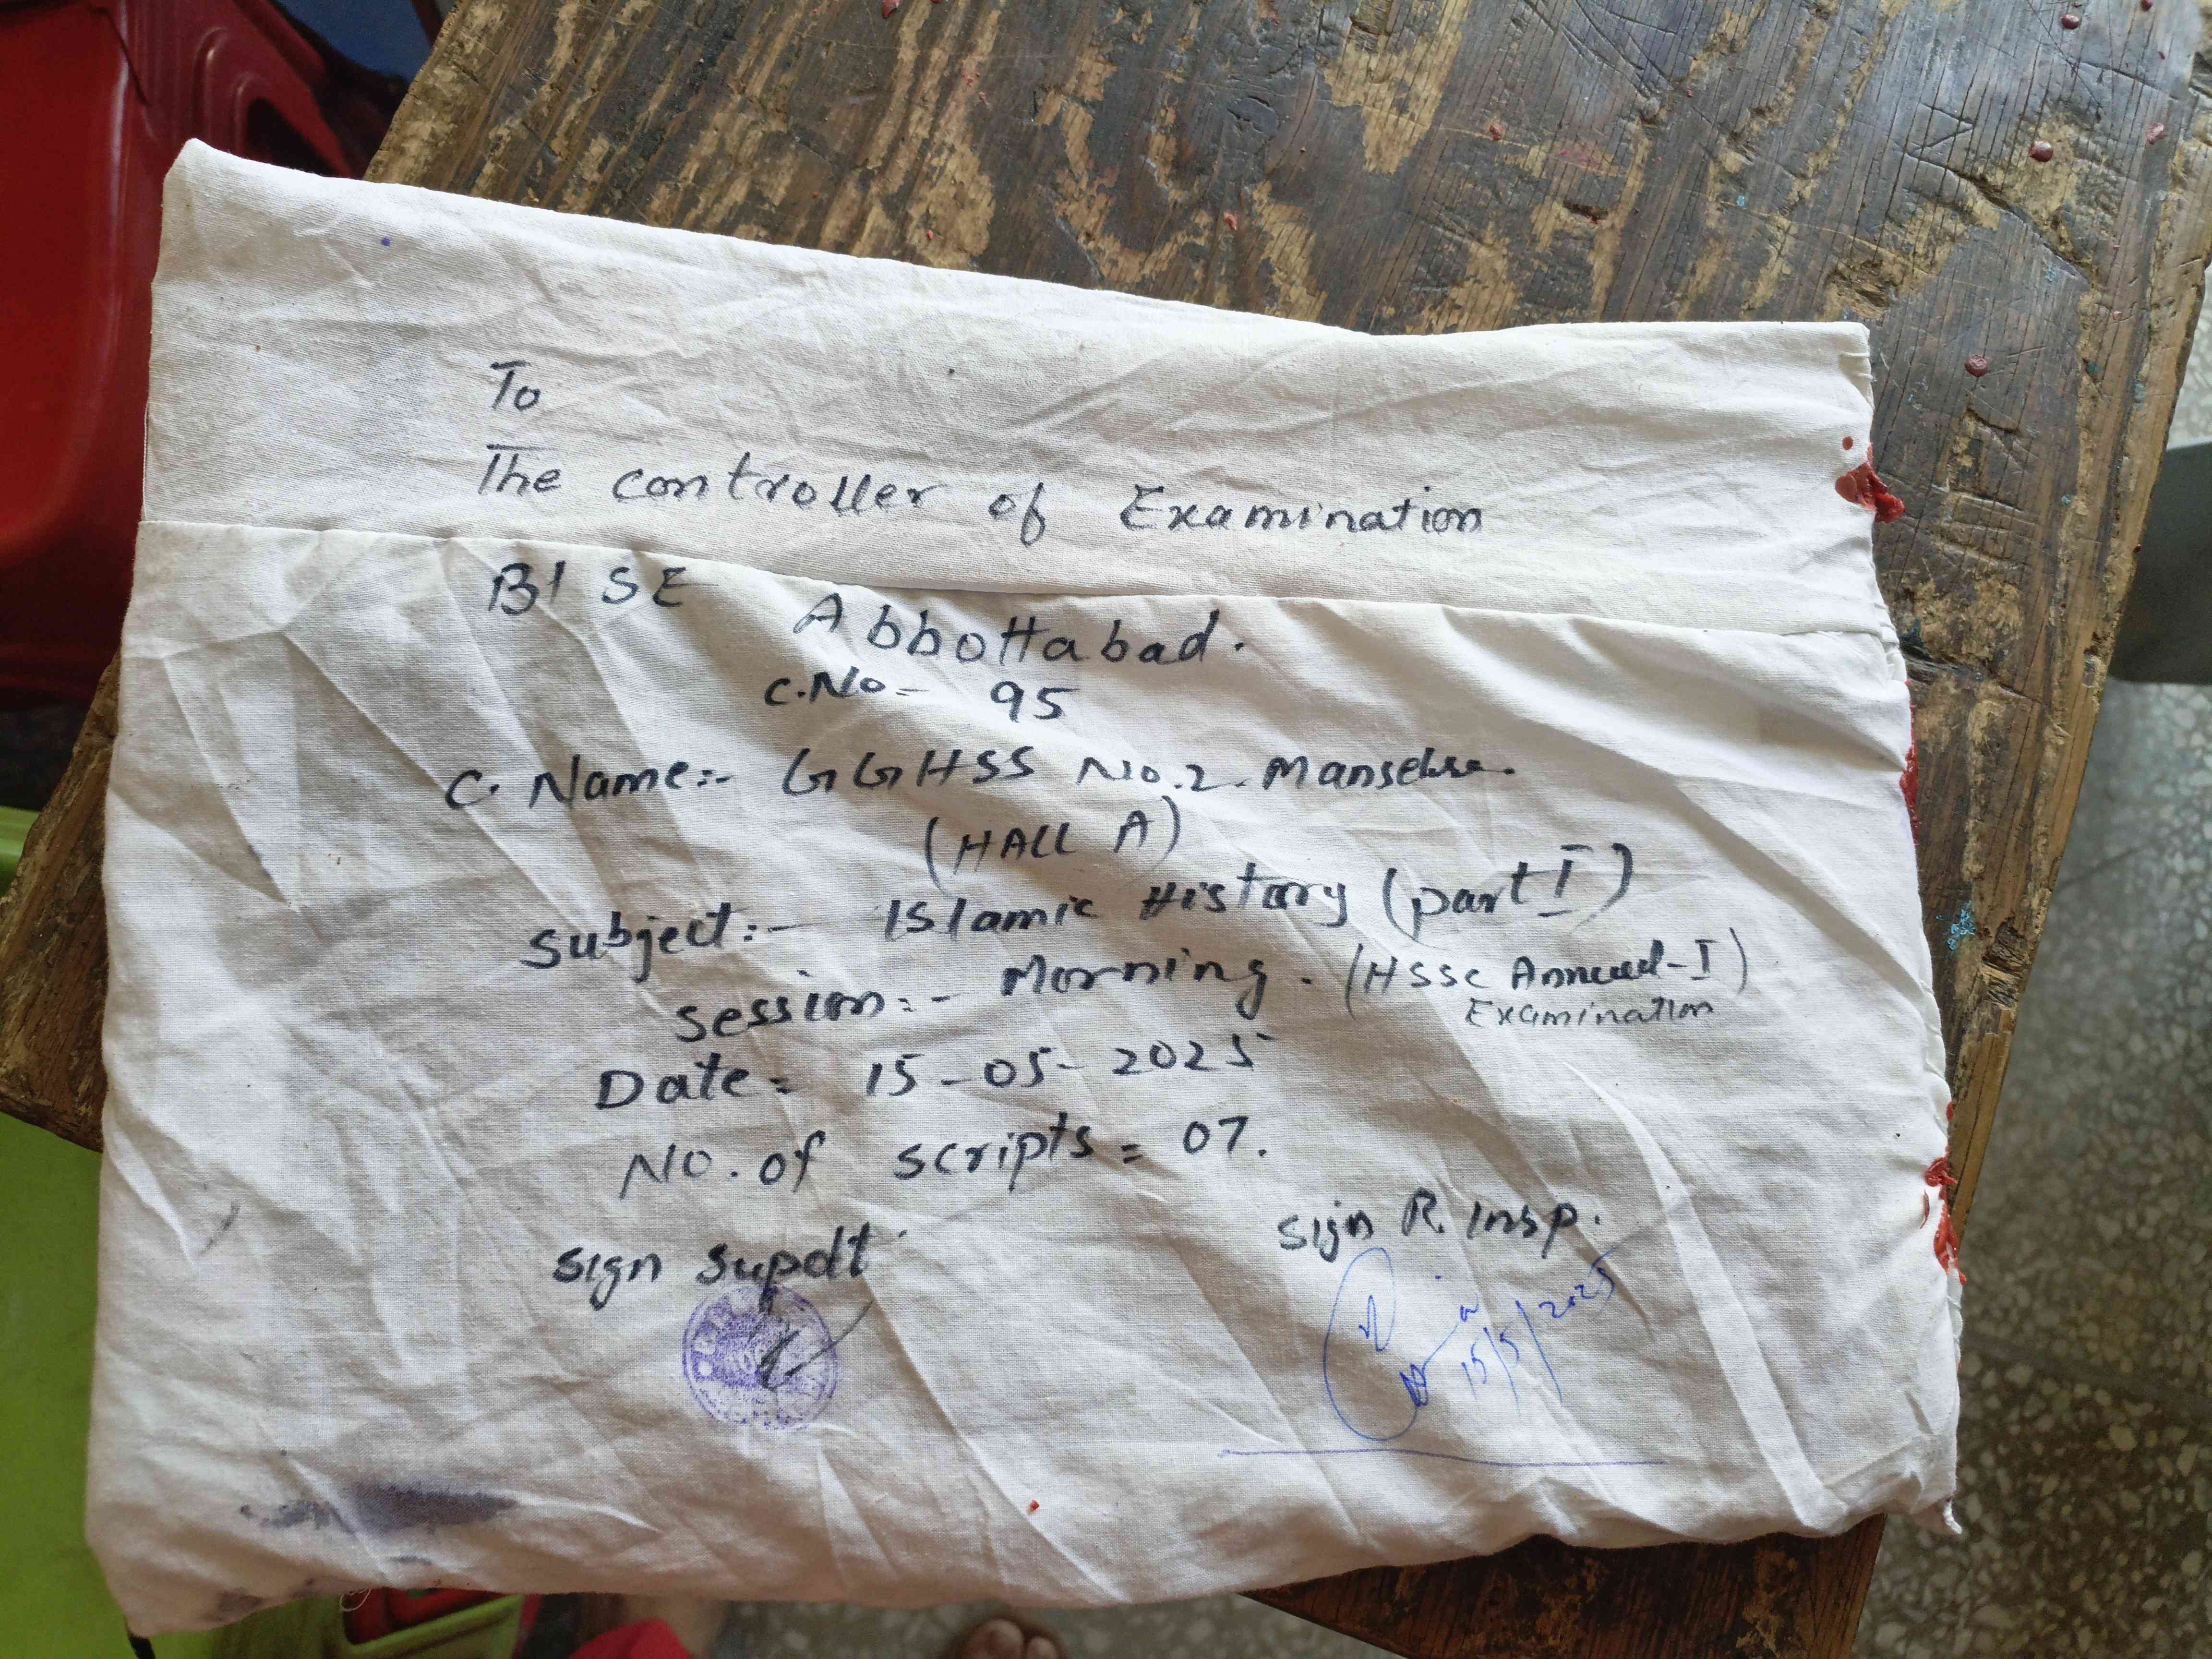 To
The controller of Examination
BISE Abbottabad.
C.No= 95
C. Name:- GGHSS No.2. Mansehra.
(HALL A)
Subject:- Islamic History (part I)
Session:- Morning. (HSSC Annual-I)
Examination
Date= 15-05-2025
No. of scripts = 07.
Sign Supdt
Sign R. Insp.
15/5/2025